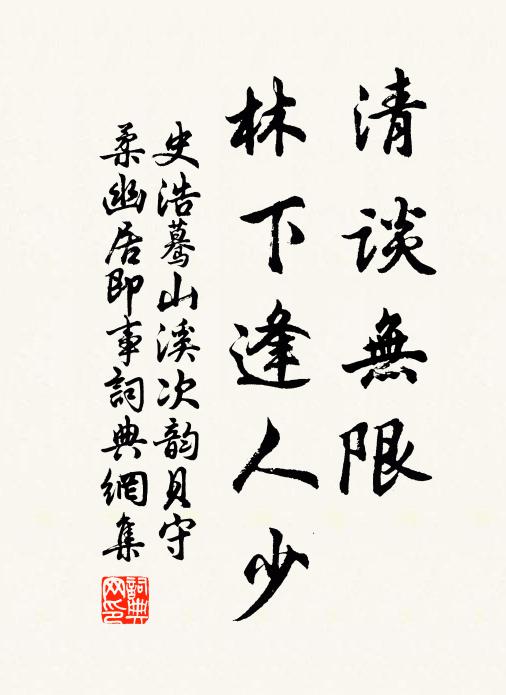 清談無限
林下逢人少
史浩驀山溪次韵貝守
柔幽居即事詞典網集
詞典网印